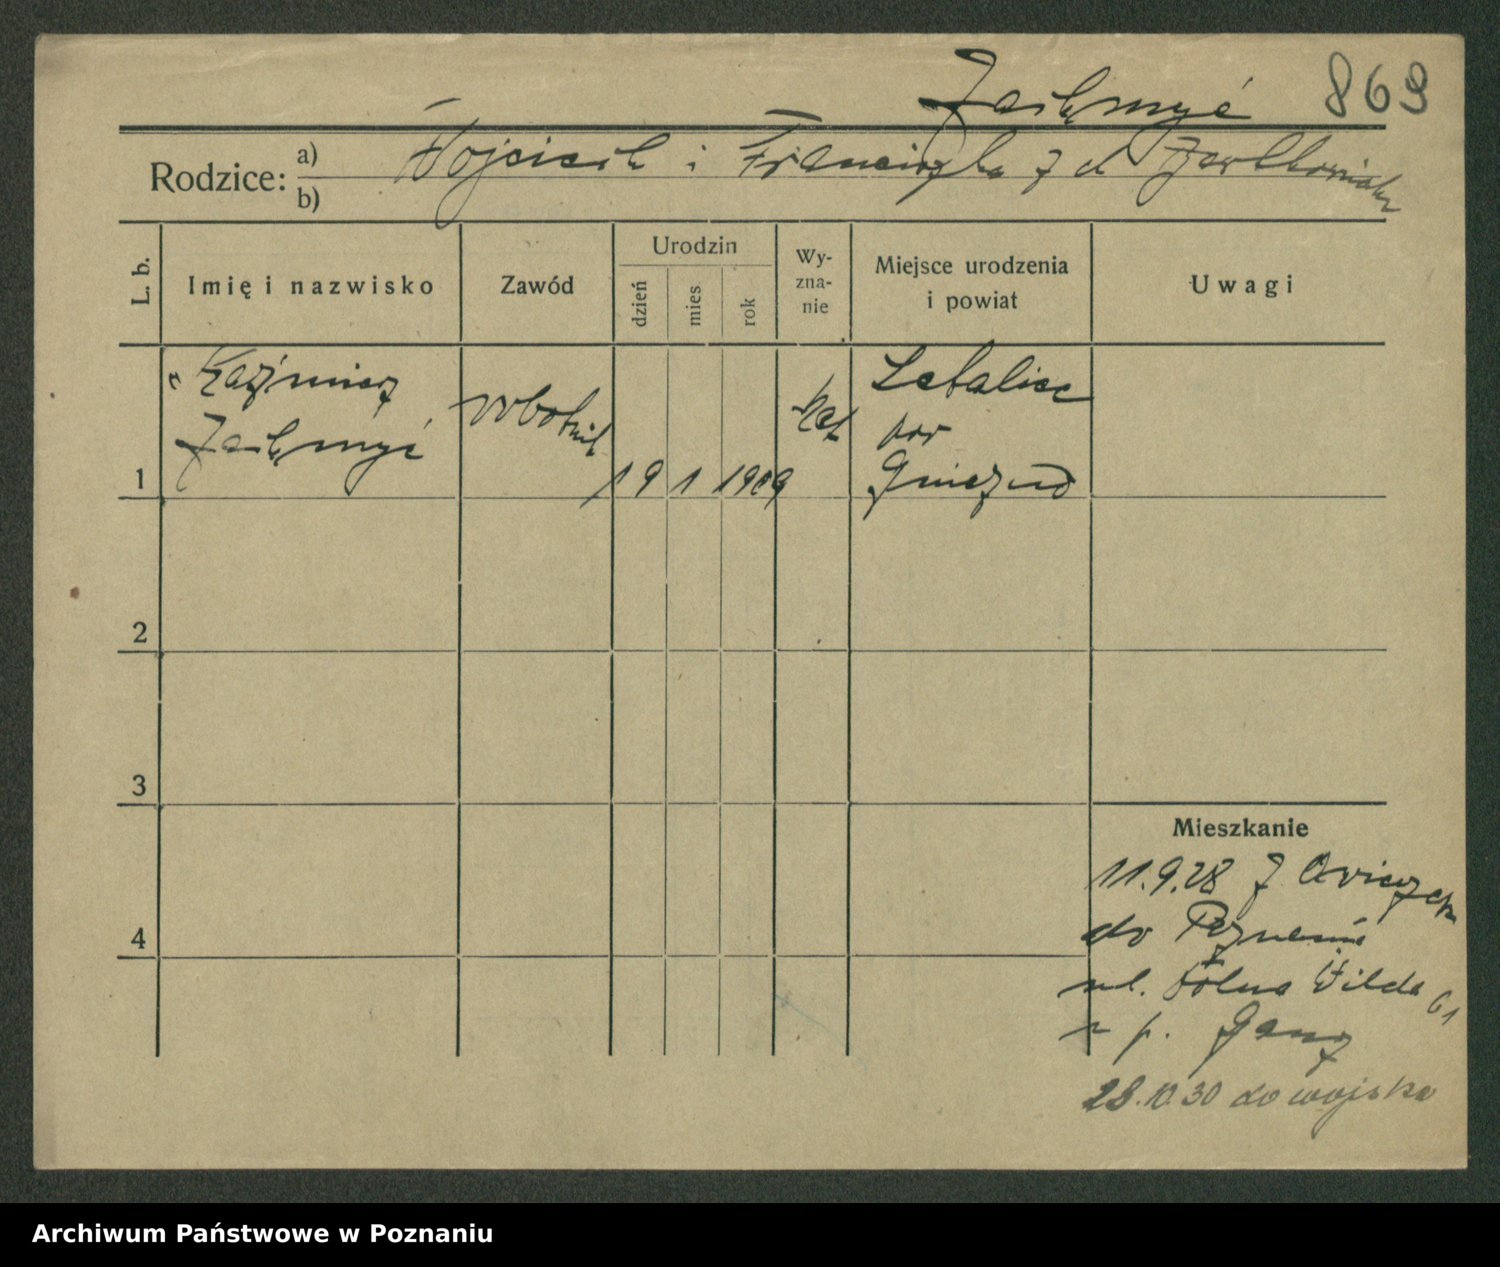 869
Rodzice: a) Wojciech i Franciszka z d
b)
L. b.
Imię i nazwisko
Zawód
Urodzin
dzień
mies
rok
Wy-
zna-
nie
Miejsce urodzenia
i powiat
Uwagi
Kazimierz
robotnik
19 1 1909
kat
pow
Gniezno
1
2
3
4
Mieszkanie
11.9.28 z
do Poznania
ul. Dolna Wilda 61
p. Ganz
28.10.30 do wojska
Archiwum Państwowe w Poznaniu